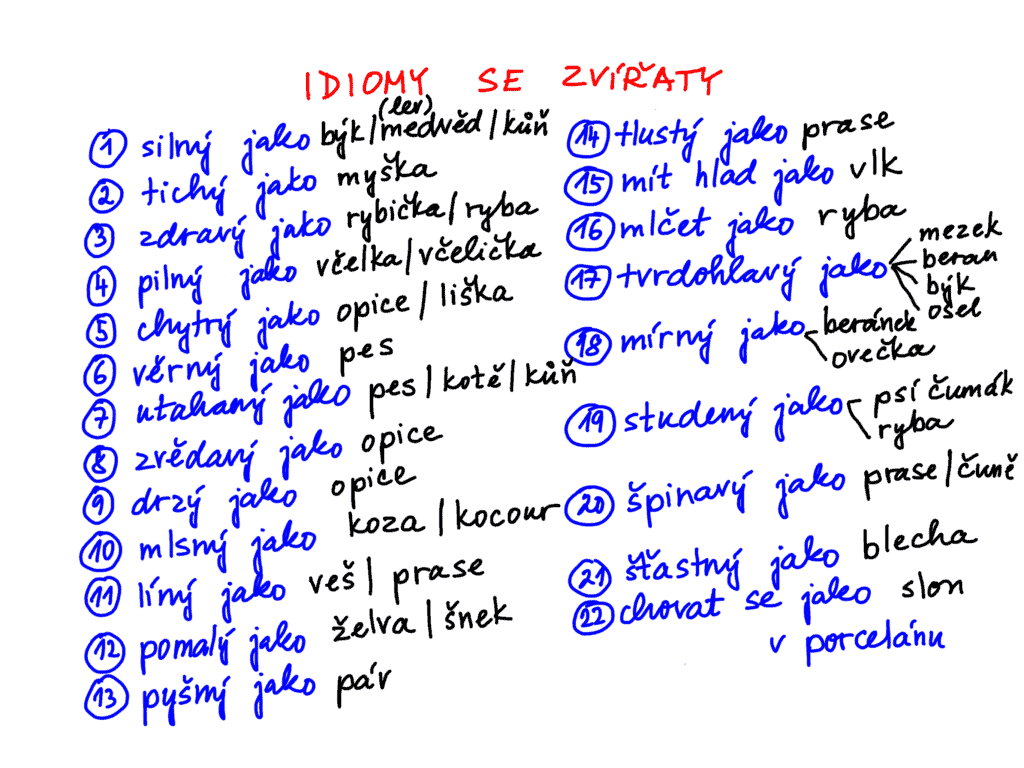 IDIOMY SE ZVÍŘATY
1 silný jako býk/medvěd/kůň
(lev)
2 tichý jako myška
3 zdravý jako rybička/ryba
4 pilný jako včelka/včelička
5 chytrý jako opice/liška
6 věrný jako pes
7 utahaný jako pes/kotě/kůň
8 zvědavý jako opice
9 drzý jako opice
10 mlsný jako koza/kocour
11 líný jako veš/prase
12 pomalý jako želva/šnek
13 pyšný jako páv
14 tlustý jako prase
15 mít hlad jako vlk
16 mlčet jako ryba
17 tvrdohlavý jako mezek
beran
býk
osel
18 mírný jako beránek
ovečka
19 studený jako psí čumák
ryba
20 špinavý jako prase/čuně
21 šťastný jako blecha
22 chovat se jako slon
v porcelánu